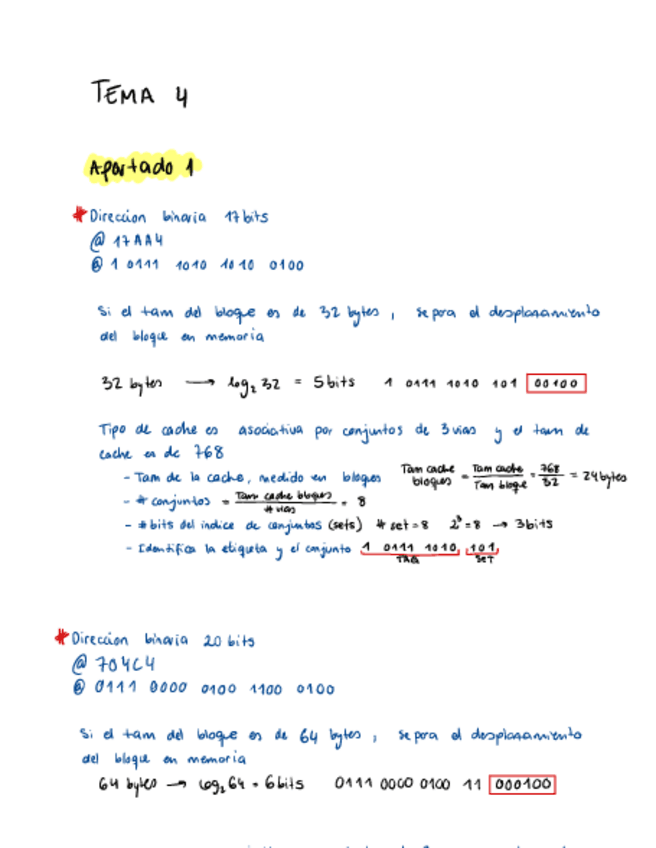 TEMA 4
Apartado 1
* Direccion binaria 17 bits
@ 17AA4
@ 1 0111 1010 1010 0100
Si el tam del bloque es de 32 bytes, separa el desplazamiento
del bloque en memoria
32 bytes → log₂ 32 = 5 bits 1 0111 1010 101 00100
Tipo de cache es asociativa por conjuntos de 3 vias y el tam de
cache es de 768
- Tam de la cache, medido en bloques Tam cache bloques = Tam cache / Tam bloque = 768 / 32 = 24 bytes
- # conjuntos = Tam cache bloques / # vias = 8
- # bits del indice de conjuntos (sets) # set = 8 2³ = 8 → 3 bits
- Identifica la etiqueta y el conjunto 1 0111 1010, 101
TAG SET
* Direccion binaria 20 bits
@ 704C4
@ 0111 0000 0100 1100 0100
Si el tam del bloque es de 64 bytes, separa el desplazamiento
del bloque en memoria
64 bytes → log₂ 64 = 6 bits 0111 0000 0100 11 000100